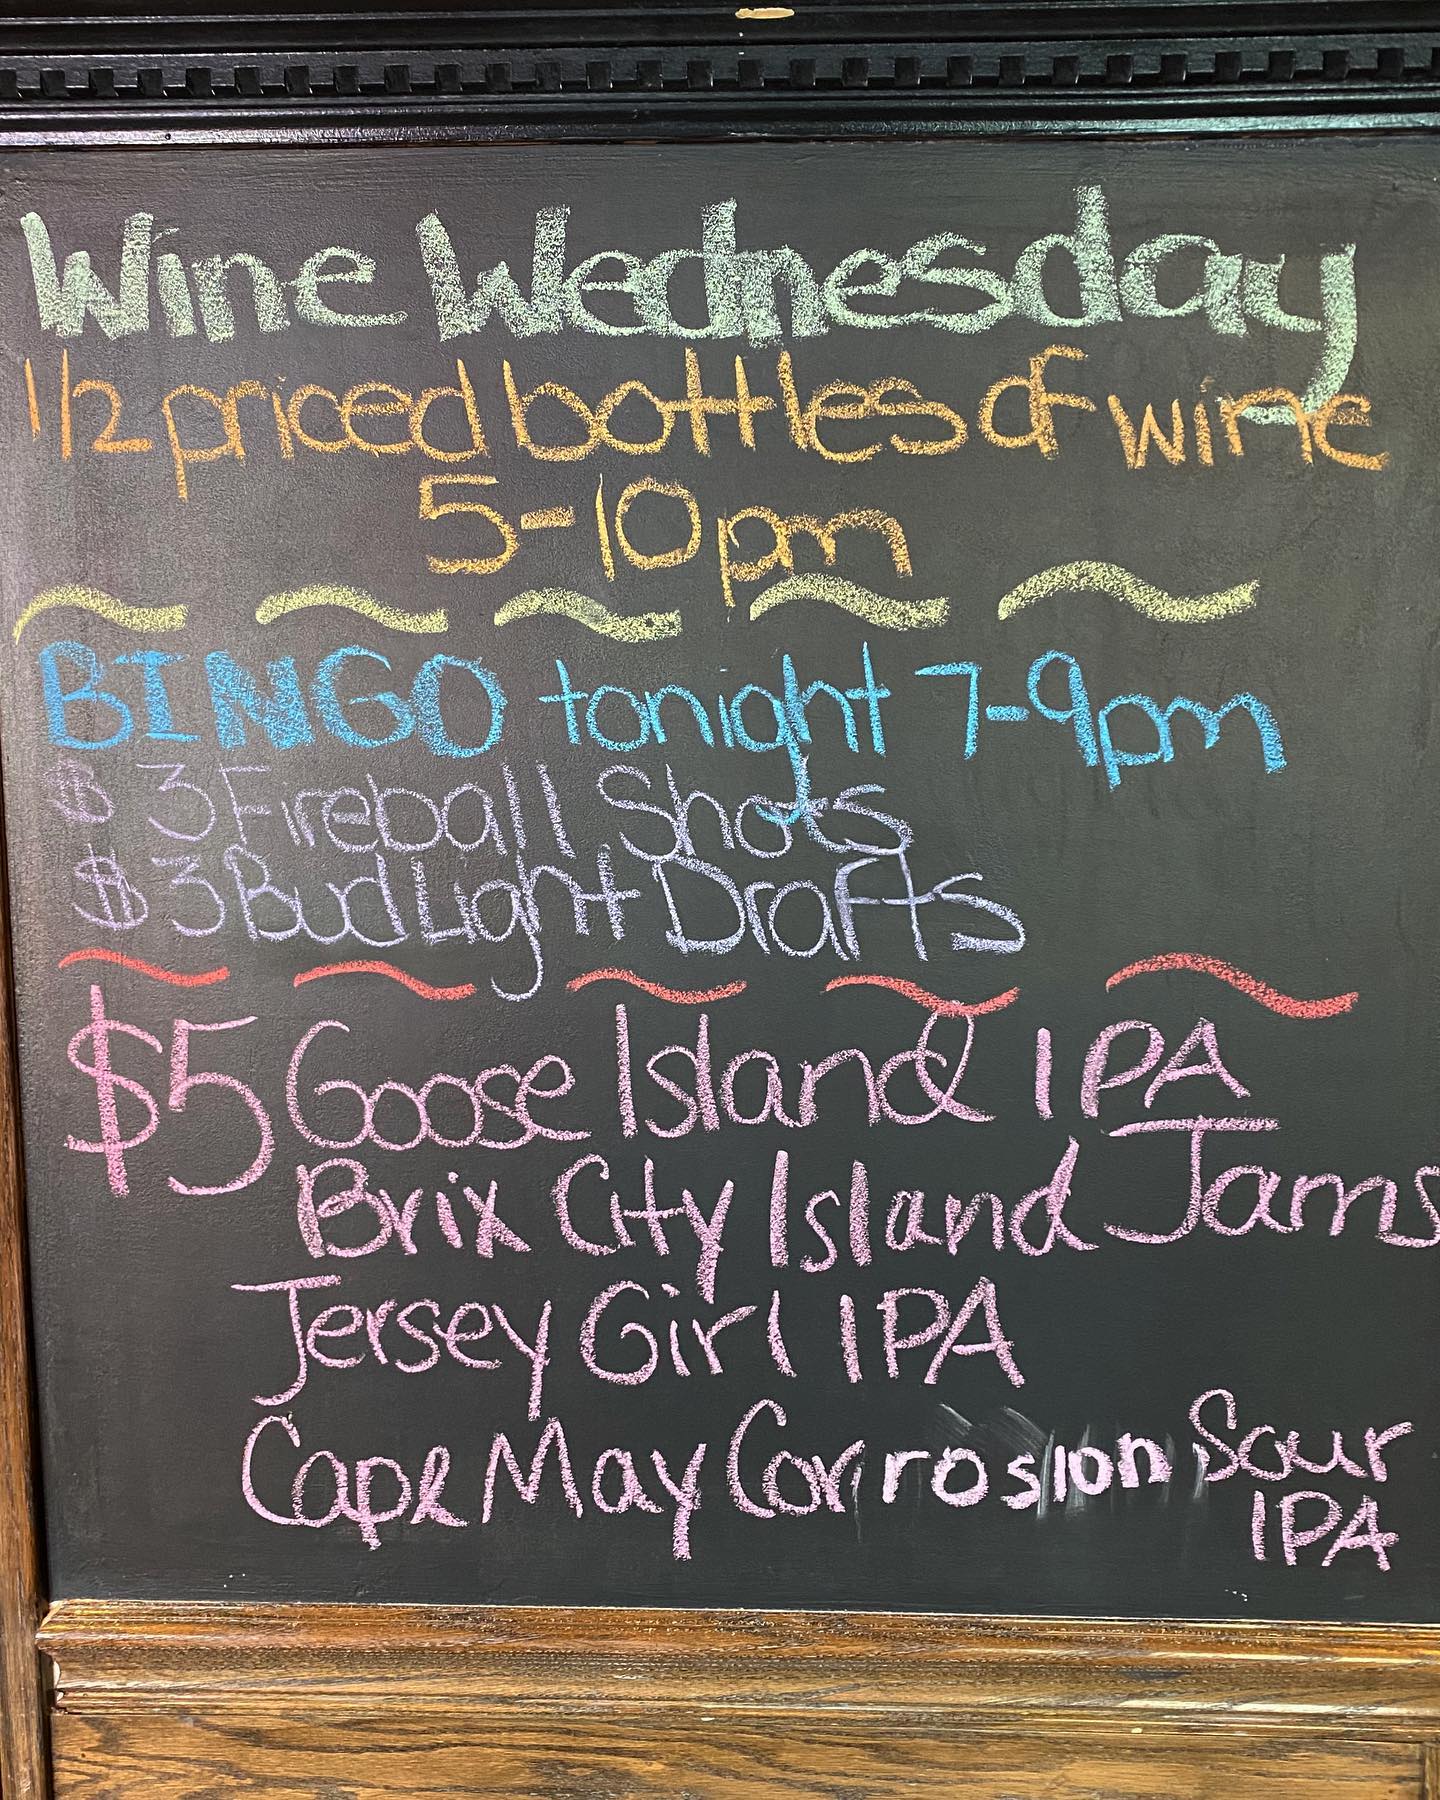 Wine Wednesday
1/2 priced bottles of wine
5-10pm
BINGO tonight 7-9pm
$3 Fireball Shots
$3 Bud Light Drafts
$5 Goose Island IPA
Brix City Island Jams
Jersey Girl IPA
Cape May Corrosion Sour
IPA